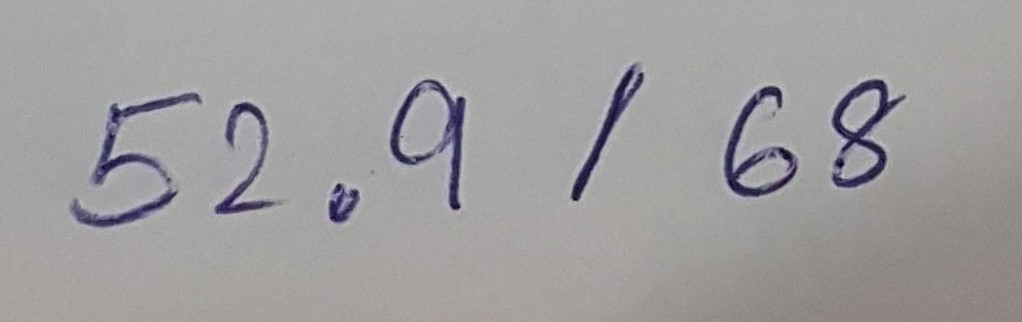 52.9 / 68